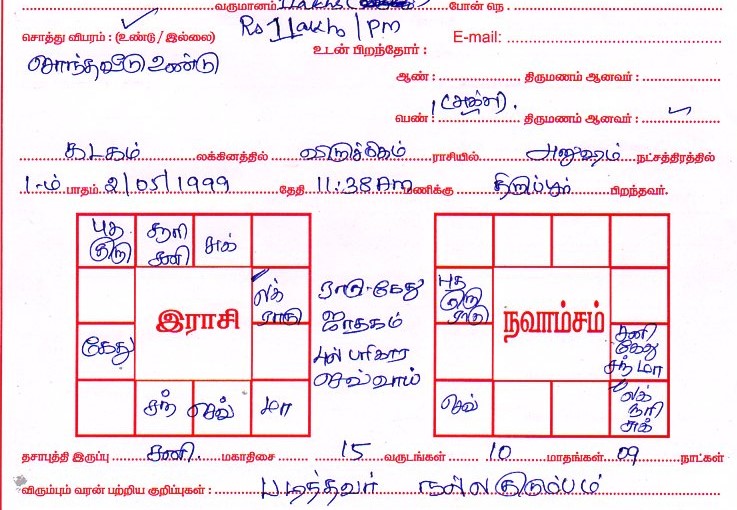 வருமானம் 1Lakhs போன் நெ.
சொத்து விபரம் : (உண்டு / இல்லை) Rs 1 Lakhs / PM E-mail:
சொந்தவீடு உண்டு உடன் பிறந்தோர் :
ஆண் : திருமணம் ஆனவர் :
பெண் : 1 (அக்கா). திருமணம் ஆனவர் :
கடகம் லக்கினத்தில் விருச்சிகம் ராசியில் அனுஷம் நட்சத்திரத்தில்
1-ம் பாதம் 2/05/1999 தேதி 11:38 Am மணிக்கு திருப்பூர் பிறந்தவர்.
புத குரு
சூரி சனி
சுக்
லக் ராகு
இராசி
கேது
சந் செவ் மா
ராகு-கேது
ஜாதகம்
பரிகார
செவ்வாய்
புத குரு ராகு
நவாம்சம்
சனி கேது சந் மா
செவ்
லக் சூரி சுக்
தசாபுத்தி இருப்பு சனி. மகாதிசை 15 வருடங்கள் 10 மாதங்கள் 09 நாட்கள்
விரும்பும் வரன் பற்றிய குறிப்புகள் : படித்தவர் நல்ல குடும்பம்